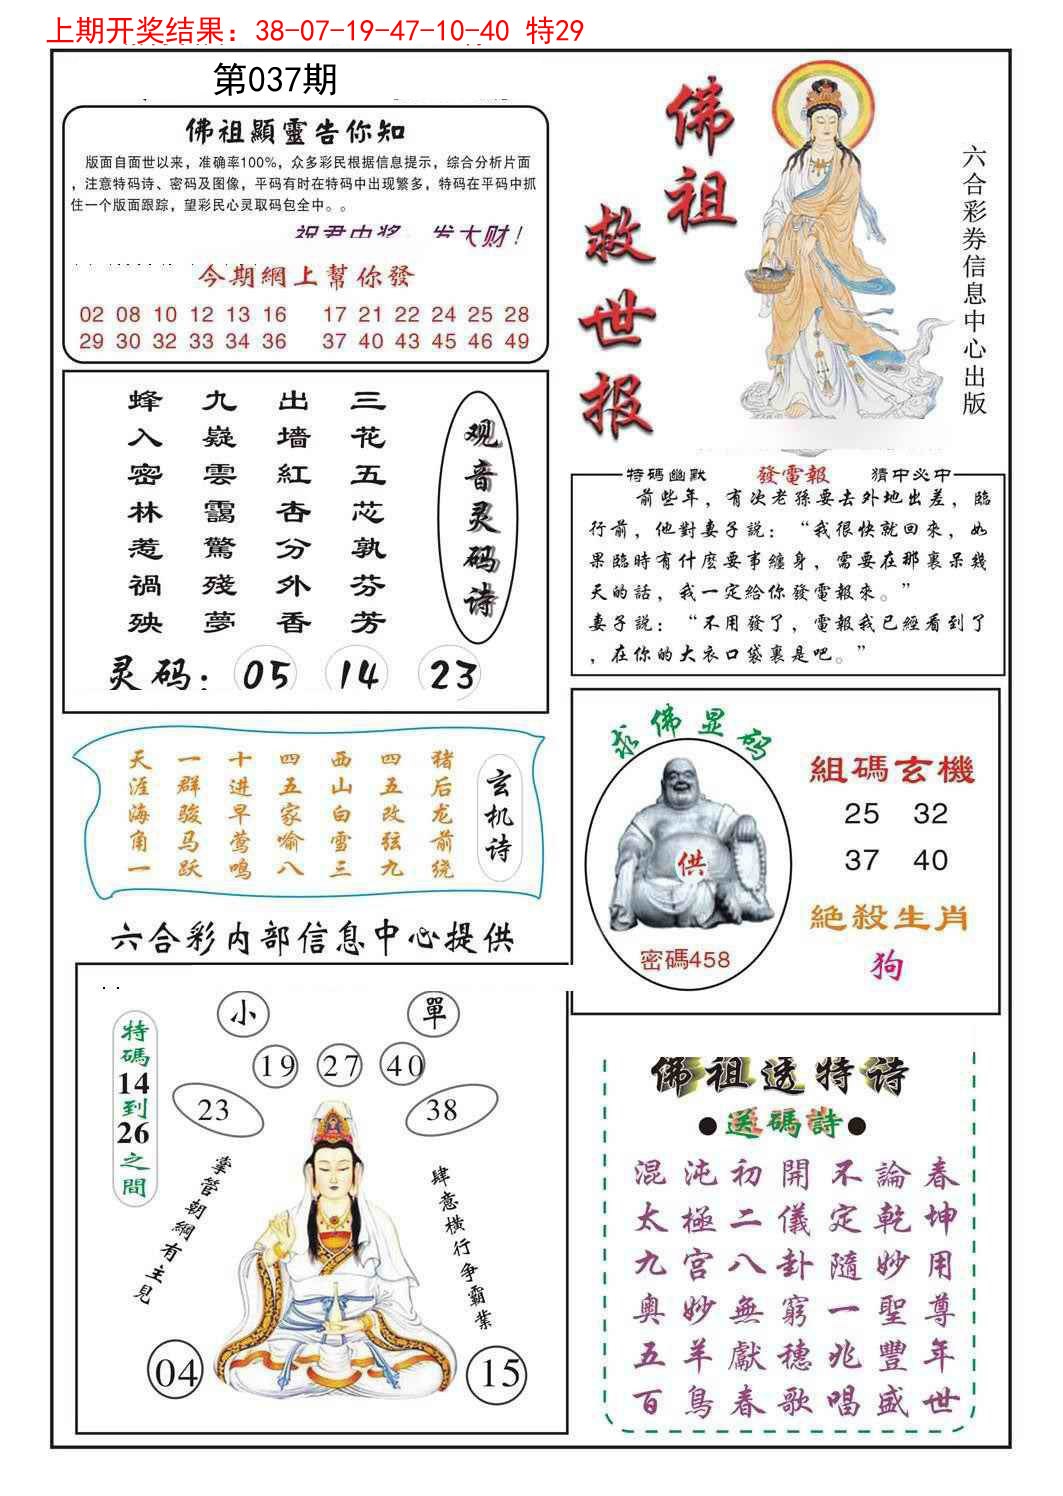 上期开奖结果：38-07-19-47-10-40 特29
第037期
佛祖顯靈告你知
版面自面世以来，准确率100%，众多彩民根据信息提示，综合分析片面
，注意特码诗、密码及图像，平码有时在特码中出现繁多，特码在平码中抓
住一个版面跟踪，望彩民心灵取码包全中。。
祝君中奖 发大财！
今期網上幫你發
02 08 10 12 13 16 17 21 22 24 25 28
29 30 32 33 34 36 37 40 43 45 46 49
佛祖
救世报
六合彩券信息中心出版
三花五芯孰芬芳
出墙紅杏分外香
九嶷雲靄驚殘夢
蜂入密林惹禍殃
观音灵码诗
灵码：05 14 23
特碼幽默 發電報 猜中必中
前些年，有次老孫要去外地出差，臨
行前，他對妻子説：“我很快就回來，如
果臨時有什麽要事纏身，需要在那裏呆幾
天的話，我一定給你發電報來。”
妻子説：“不用發了，電報我已經看到了
，在你的大衣口袋裏是吧。”
玄机诗
猪后龙前绕
四五改弦九
西山白雪三
四五家喻八
十进早莺鸣
一群骏马跃
天涯海角一
求佛显码
供
密碼458
組碼玄機
25 32
37 40
絕殺生肖
狗
六合彩内部信息中心提供
特碼14到26之間
小 單
19 27 40
23 38
掌管朝綱有主見
肆意横行争霸業
04 15
佛祖透特诗
●送碼詩●
混沌初開不論春
太極二儀定乾坤
九宫八卦隨妙用
奥妙無窮一聖尊
五羊獻穗兆豐年
百鳥春歌唱盛世